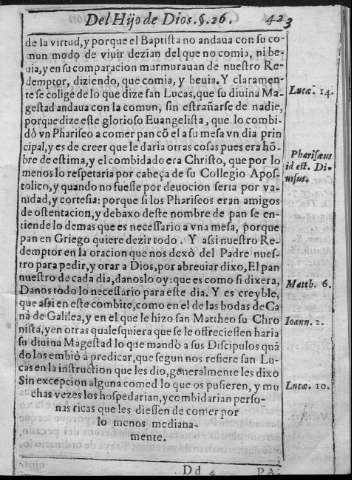 Del Hijo de Dios. §. 26. 423
de la virtud, y porque el Baptista no andaua con su co
mun modo de viuir dezian del que no comia, ni be-
uia, y en su comparacion murmurauan de nuestro Re-
demptor, diziendo, que comia, y beuia. Y claramen-
te se colige de lo que dize san Lucas, que su diuina Ma-
gestad andaua con la comun, sin estrañarse de nadie,
porque dize este glorioso Euangelista, que lo combi-
dò vn Phariseo a comer pan cõ el a su mesa vn dia prin
cipal, y es de creer que le daria otras cosas pues era hõ-
bre de estima, y el combidado era Christo, que por lo
menos lo respetaria por cabeça de su Collegio Apos-
tolico, y quando no fuesse por deuocion seria por va-
nidad, y cortesia: porque si los Phariseos eran amigos
de ostentacion, y debaxo deste nombre de pan se en-
tiende lo demas que es necessario a vna mesa, porque
pan en Griego quiere dezir todo. Y assi nuestro Re-
demptor en la oracion que nos dexò del Padre nues-
tro para pedir, y orar a Dios, por abreuiar dixo, El pan
nuestro de cada dia, danoslo oy: que es como si dixera,
Danos todo lo necessario para este dia. Y es creyble,
que assi en este combite, como en el de las bodas de Ca
nà de Galilea, y en el que le hizo san Mattheo su Chro
nista, y en otras qualesquiera que se le offreciessen haria
su diuina Magestad lo que mandò a sus Discipulos quã
do los embiò a predicar, que segun nos refiere san Lu-
cas en la instruction que les dio, generalmente les dixo
Sin excepcion alguna comed lo que os pusieren, y mu
chas vezes los hospedarian, y combidarian perso-
nas ricas que les diessen de comer por
lo menos mediana-
mente.
Lucæ. 14.
Pharisæus
id est. Di-
uisus.
Matth. 6.
Ioann. 2.
Lucæ. 10.
Dd 4 PA-